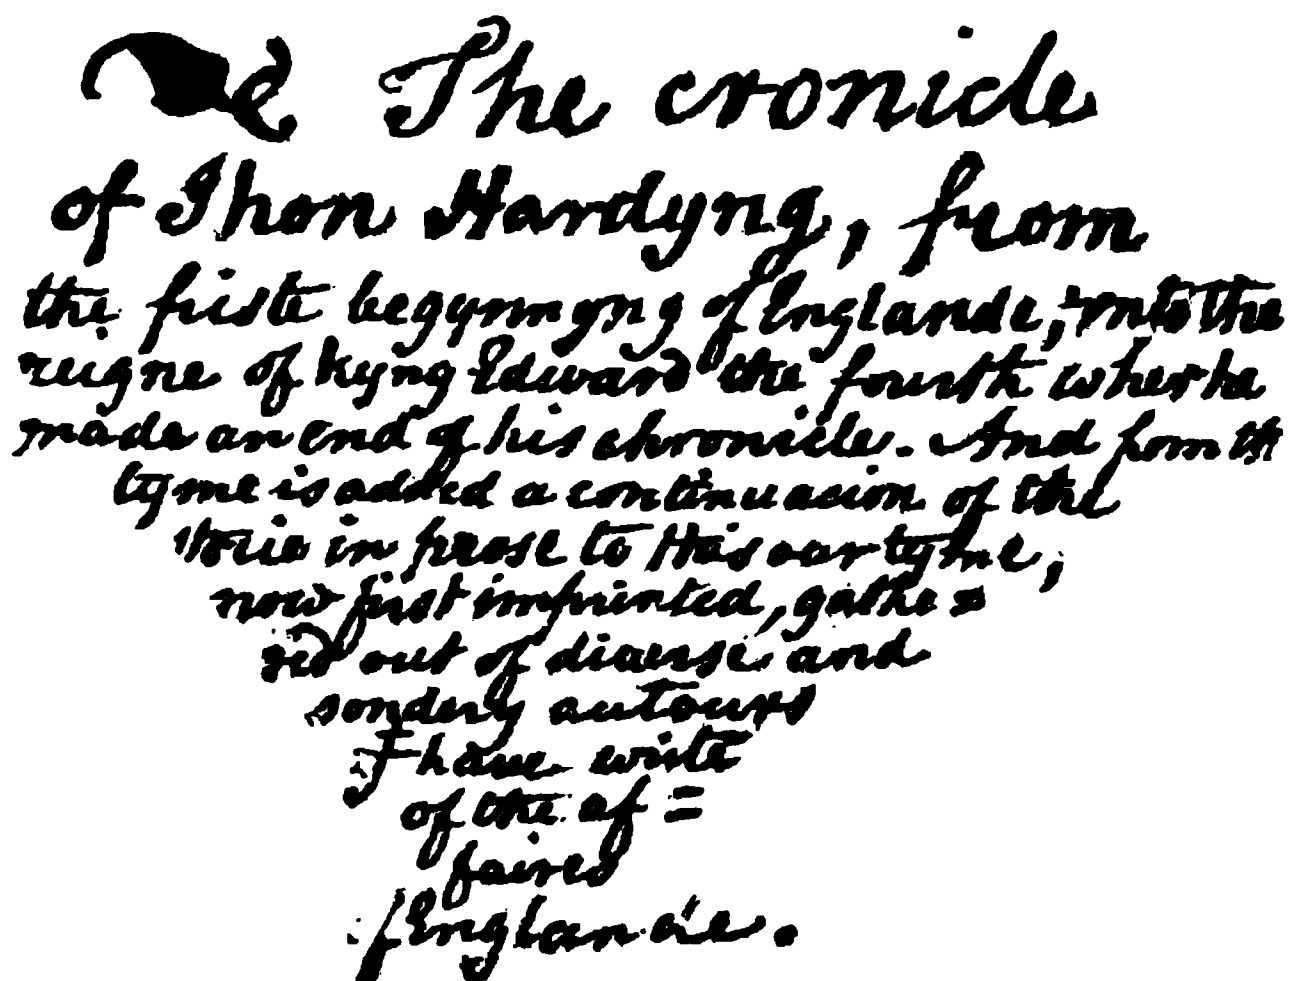 The cronicle
of Jhon Hardyng, from
the firste begynnyng of Englande, vnto the
reigne of kyng Edward the fourth wher he
made an end of his chronicle. And from th
tyme is added a continuacion of the
storie in prose to this our tyme,
now first imprinted, gathe=
red out of diuerse and
sondery autours
yt haue write
of the af=
faires
of Englande.